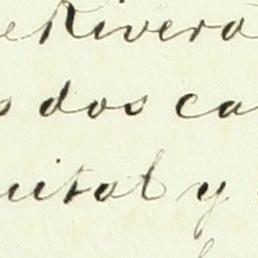 e Rivera
s dos ca
uital y